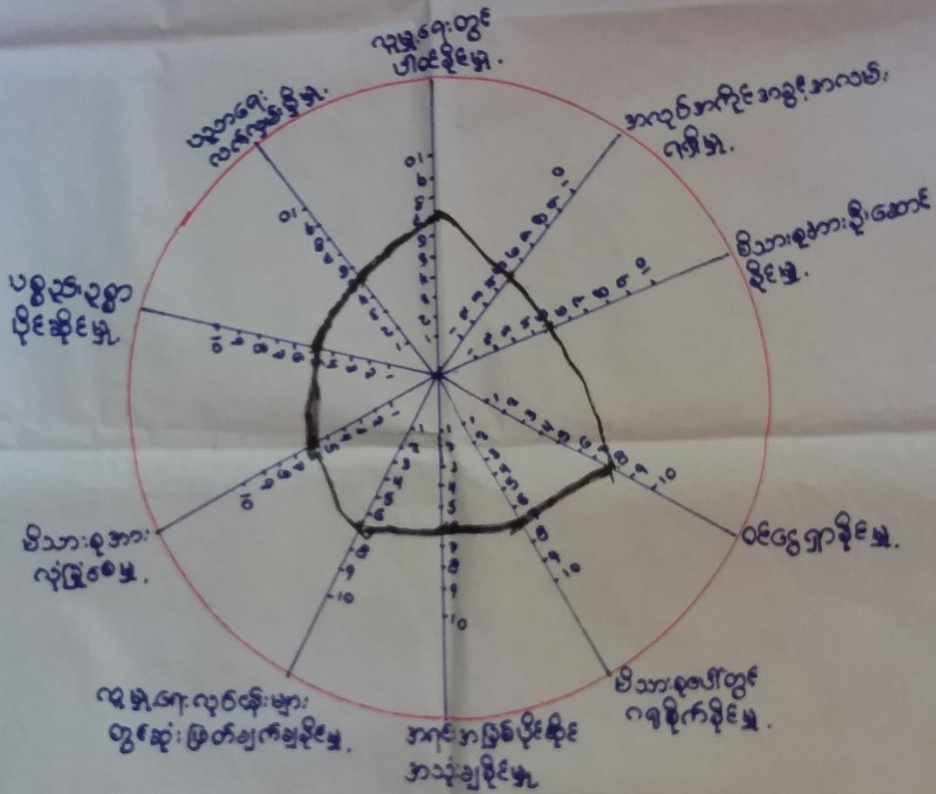 လူမှုရေးတွင်
ပါဝင်နိုင်မှု.
အလုပ်အကိုင်အခွင့်အလမ်း
ရရှိမှု.
မိသားစုအားဦးဆောင်
နိုင်မှု.
ဝင်ငွေရှာနိုင်မှု.
မိသားစုပေါ်တွင်
ဂရုစိုက်နိုင်မှု.
အရင်းအမြစ်ပိုင်ဆိုင်
အသုံးချနိုင်မှု
လူမှုရေးလုပ်ငန်းများ
တွင်ဆုံးဖြတ်ချက်ချနိုင်မှု.
မိသားစုအား
လုံခြုံစေမှု.
ပစ္စည်းဥစ္စာ
ပိုင်ဆိုင်မှု
ပညာရေး
လက်လှမ်းမှီမှု.
1 2 3 4 5 6 7 8 9 10